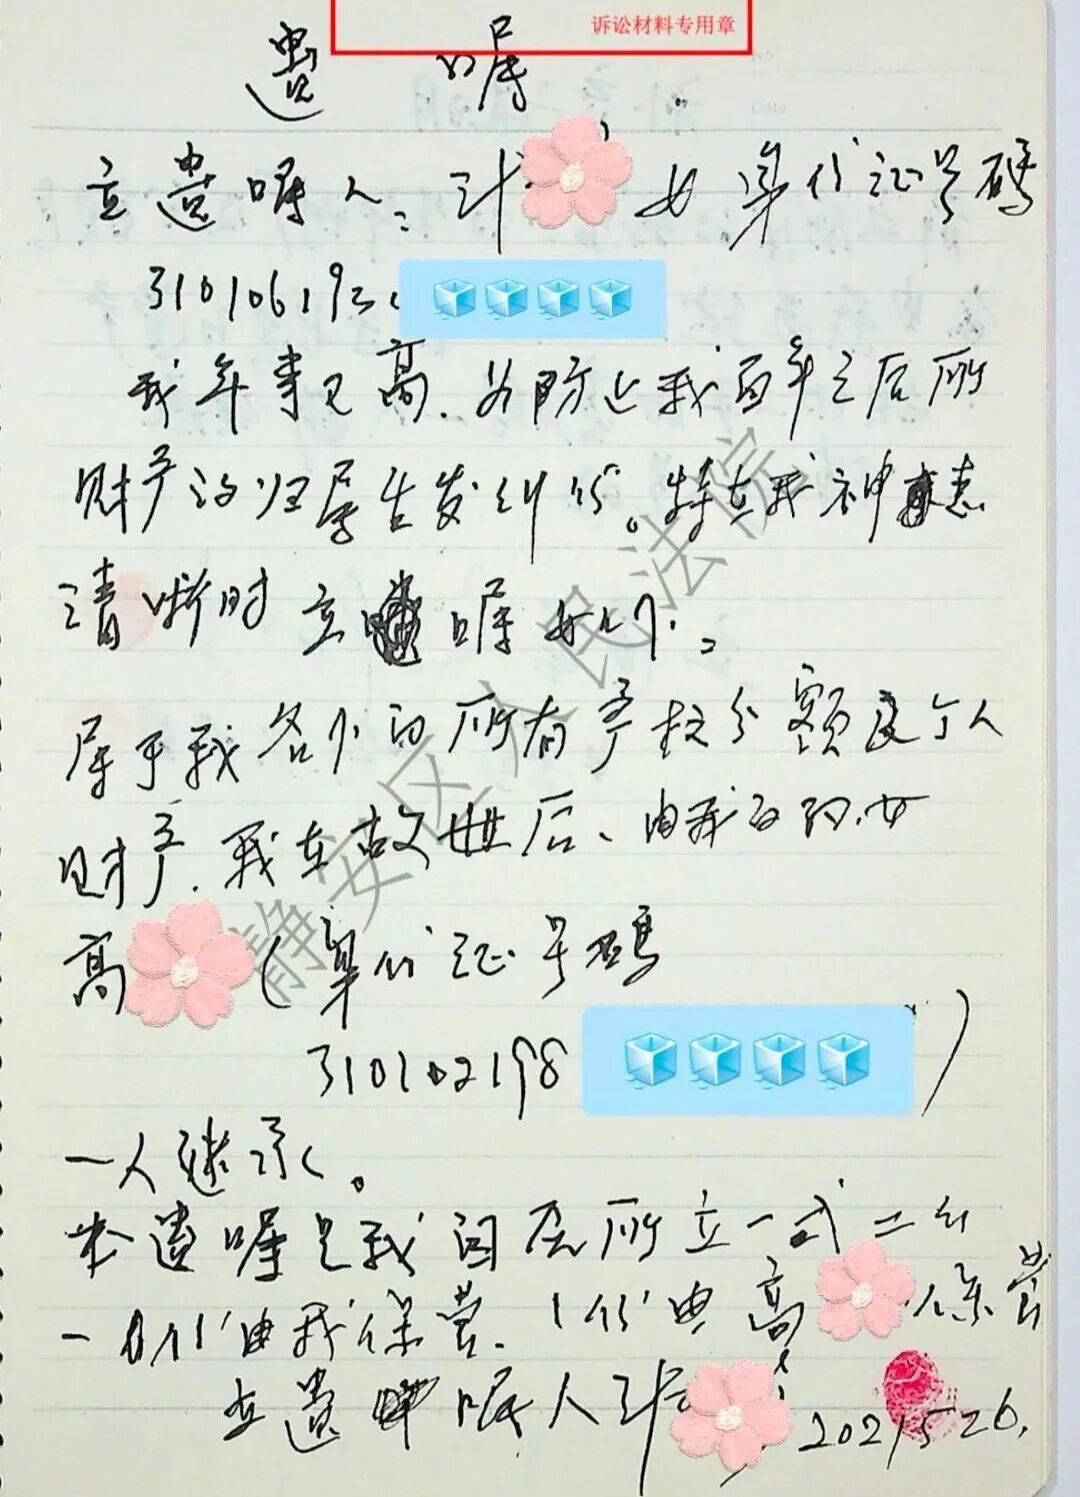 诉讼材料专用章
遗 嘱
立遗嘱人: 女 身份证号码
310106193
我年事已高.为防止我百年之后所
财产的归属生发纠纷。特在我神志
清晰时立遗嘱如下:
属于我名下的所有产权分额及个人
财产.我在故世后、由我的 女
高 (身份证号码
310102198 )
一人继承。
本遗嘱是我自愿所立一式二份
一份由我保管.1份由高 保管
立遗嘱人 2021 5 26.
静安区人民法院